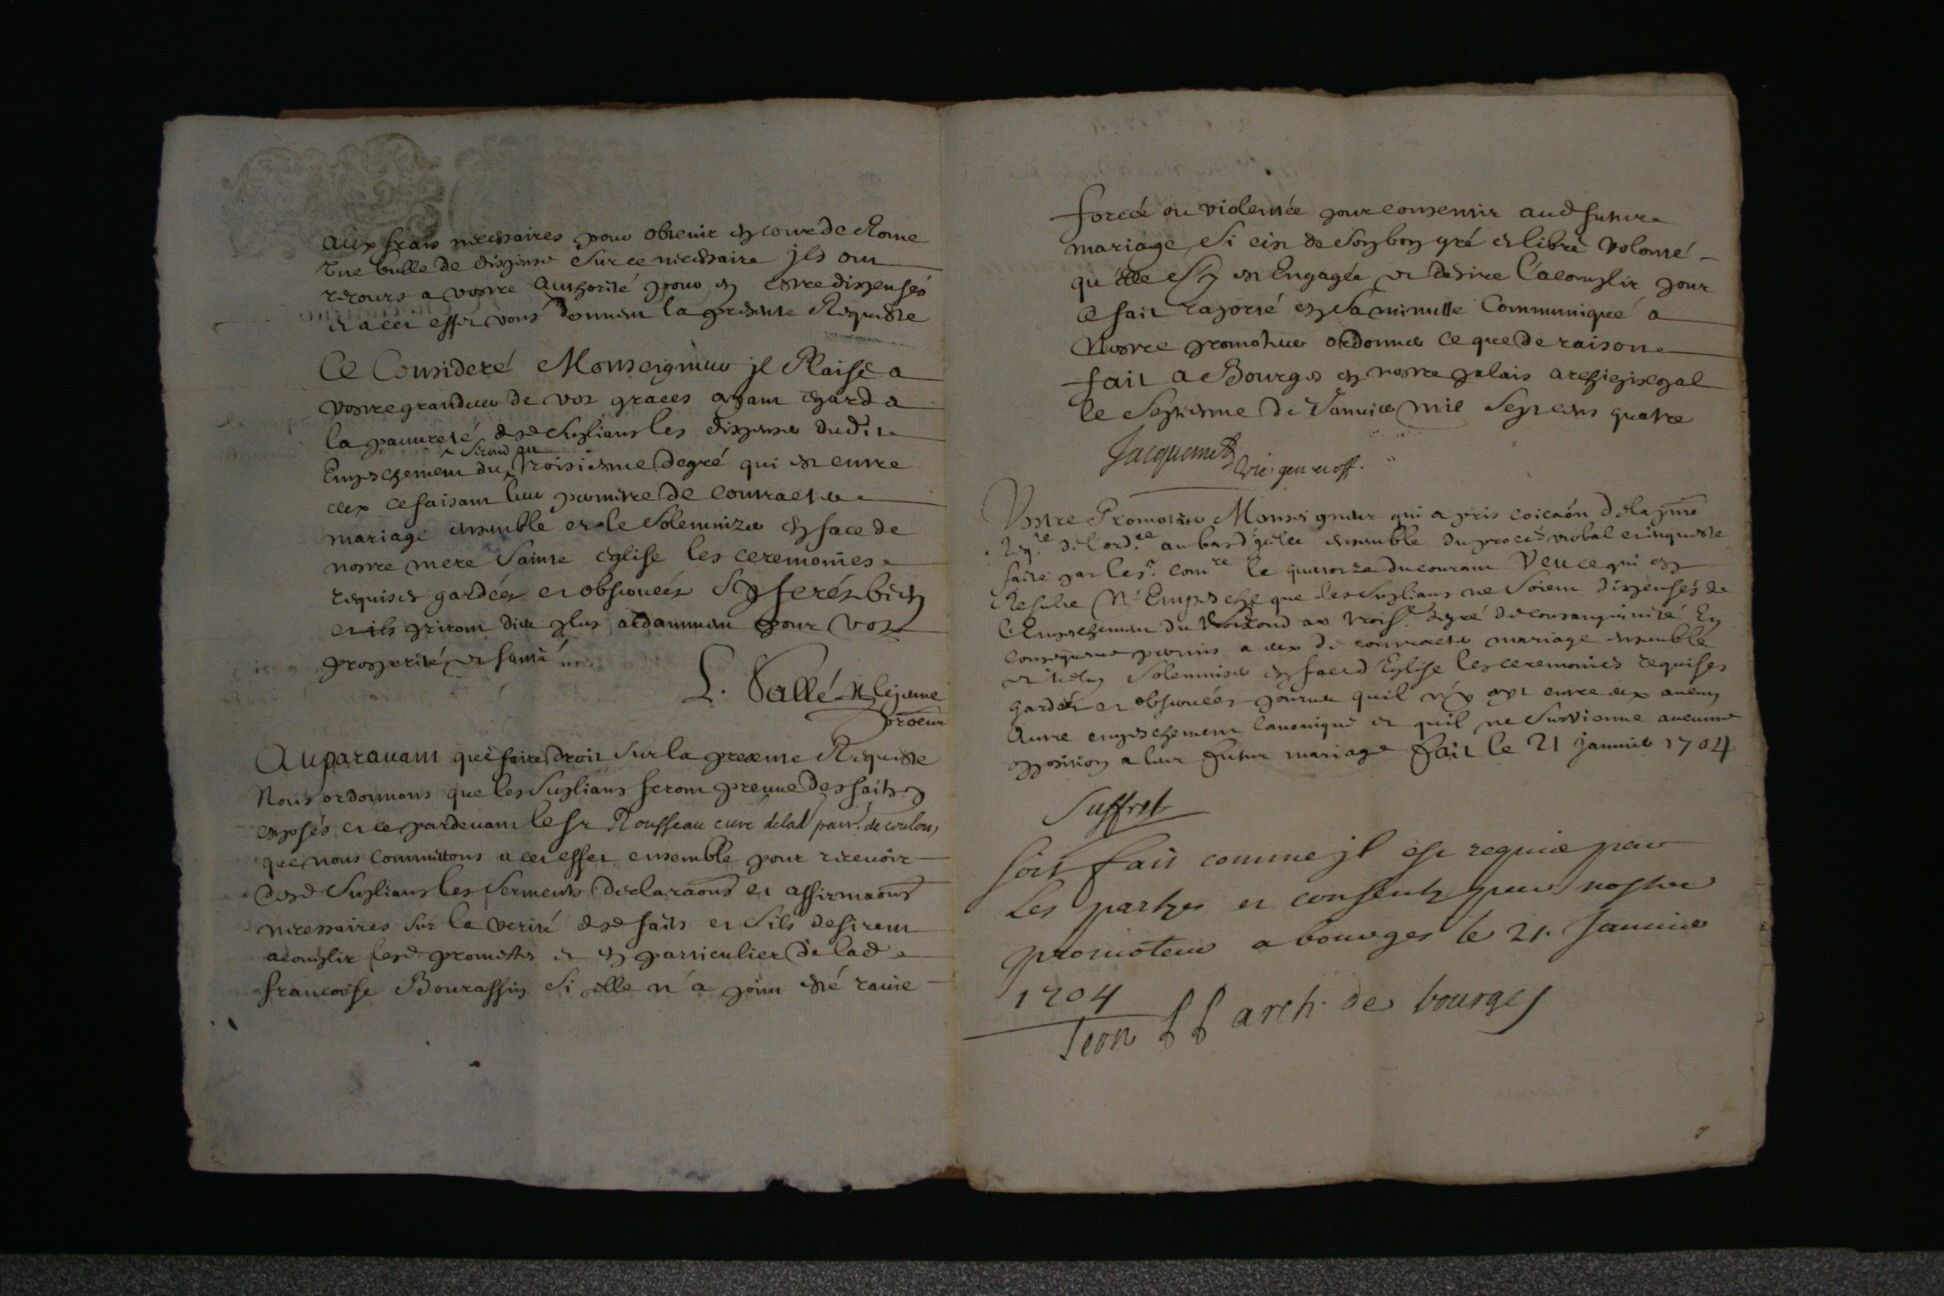 aux frais necessaires pour obtenir en cour de Rome
une bulle de dispense sur ce necessaire jls ont
recours a vostre authorité pour en estre dispensés
et a cet effet vous donnent la presente Requeste
Ce Consideré Monseigneur jl Plaise a
vostre grandeur de vos graces ayant egard a
la pauvreté desd supliants les dispenser dudit
Empeschement du second au troisiesme degré qui est entre
eux ce faisant leur permettre de contracter
mariage ensemble et le solemnizer en face de
nostre mere sainte eglise les ceremonies
requises gardées et observées sy ferés bien
et ils priront dieu plus ardamment pour vos
prosperité et santé
L. Vallé le jeune
procur
Auparavant que faire droit sur la presente Requeste
Nous ordonnons que les supliants feront preuve des faits y
exposés et ce pardevant le sr Rousseau curé de lad parr. de coulons
que nous commettons a cet effet ensemble pour recevoir
desd supliants les serments declaraons et affirmaons
necessaires sur la verité desd faits et sils desirent
acomplir lesd promettes et en particulier de lad
francoise Bourassin si elle n'a point esté ravie
forcée ou violentée pour consentir aud futur
mariage si cest de son bon gré et libre volonté
qu'elle s'y est Engagée et desire l'acomplir pour
ce fait raporté en sa minutte Communiqué a
Nostre promoteur ordonner ce que de raison
fait a Bourges en nostre palais archiepiscopal
le septiesme de Janvier mil sept cens quatre
Jacquemet
vic. gen et off.
Vostre Promoteur Monseigneur qui a pris coicaon de la pnte
Reqte de l'ordce au bas d'icelle ensemble du procés verbal et enqueste
faite par led sr comre le quatorze du courant Veu ce qui en
Resulte N'Empesche que les supliants ne soient dispensés de
l'Empeschement du second au trois.e degré de consanguinité En
consequence permis a eux de contracter mariage ensemble
et icelluy solemniser en face d'Eglise les ceremonies requises
gardées et observées pourveu quil n'y ayt entre eux aucun
autre empeschement canonique et quil ne survienne aucunne
opposition a leur futur mariage fait le 21 janvier 1704
Suffret
soit fait comme jl est requis par
les parties et consenty par nostre
promoteur a bourges le 21. Janvier
1704
Leon arch. de bourges